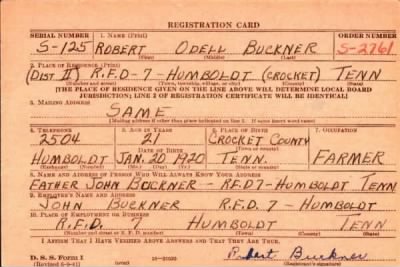 REGISTRATION CARD
SERIAL NUMBER 1. NAME (Print) ORDER NUMBER
S-125 ROBERT ODELL BUCKNER S-2761
(First) (Middle) (Last)
2. PLACE OF RESIDENCE (Print)
(DIST II) R.F.D-7-HUMBOLDT (CROCKET) TENN
(Number and street) (Town, township, village, or city) (County) (State)
[THE PLACE OF RESIDENCE GIVEN ON THE LINE ABOVE WILL DETERMINE LOCAL BOARD
JURISDICTION; LINE 2 OF REGISTRATION CERTIFICATE WILL BE IDENTICAL]
3. MAILING ADDRESS
SAME
[Mailing address if other than place indicated on line 2. If same insert word same]
4. TELEPHONE 5. AGE IN YEARS 6. PLACE OF BIRTH 7. OCCUPATION
2504 21 CROCKET COUNTY
DATE OF BIRTH
HUMBOLDT JAN. 20 1920 TENN. FARMER
8. NAME AND ADDRESS OF PERSON WHO WILL ALWAYS KNOW YOUR ADDRESS
FATHER JOHN BUCKNER - R.F.D7-HUMBOLDT TENN
9. EMPLOYER'S NAME AND ADDRESS
JOHN BUCKNER R.F.D. 7 - HUMBOLDT
10. PLACE OF EMPLOYMENT OR BUSINESS
R.F.D. HUMBOLDT TENN
(Number and street or R. F. D. number) (Town) (County) (State)
I AFFIRM THAT I HAVE VERIFIED ABOVE ANSWERS AND THAT THEY ARE TRUE.
D. S. S. Form 1 Robert Buckner
(Registrant's signature)